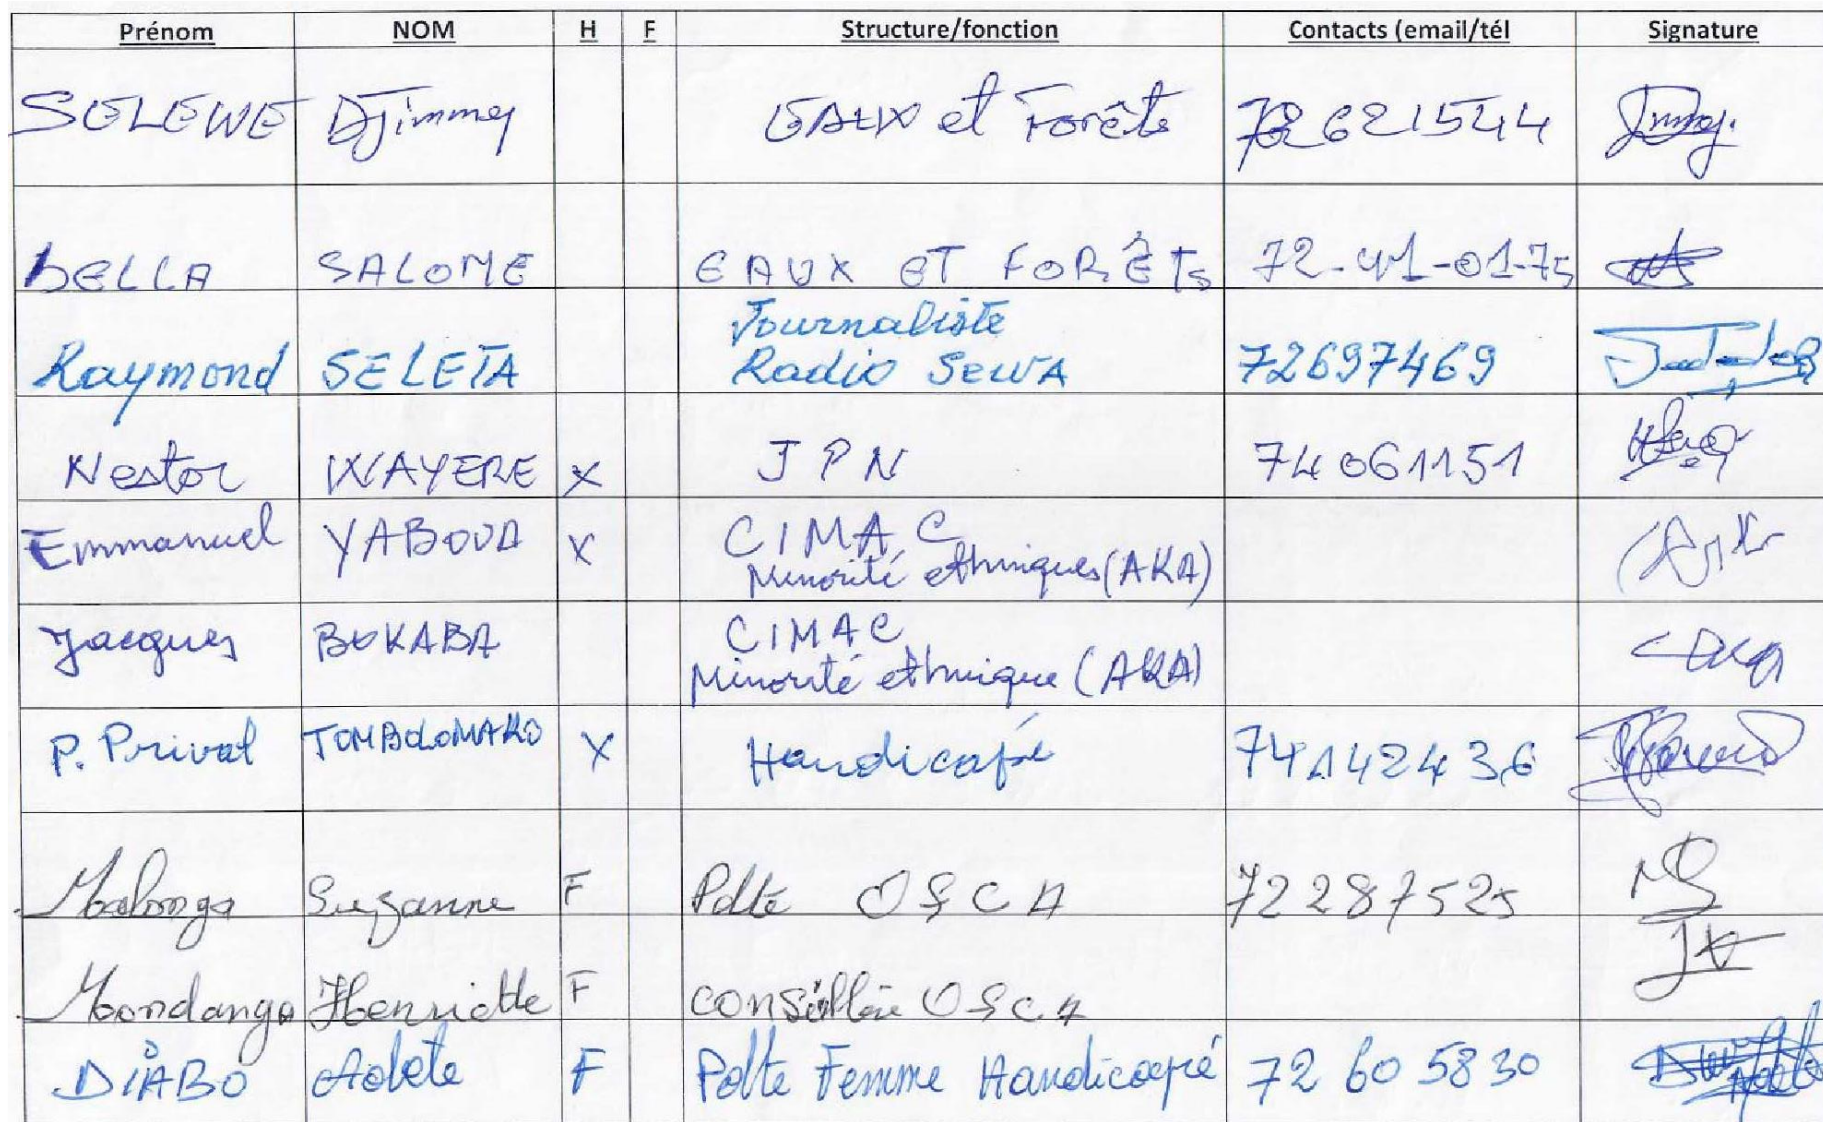 Prénom NOM H F Structure/fonction Contacts (email/tél Signature
SELEWE Djimmy EAUX et Forêts 72621544
BELLA SALOME EAUX ET FORÊTs 72-41-01-75
Journaliste
Raymond SELETA Radio SEWA 72697469
Nestor WAYERE X JPN 74061151
Emmanuel YABOUA X CIMAC
Minorité ethniques (AKA)
Jacques BOKABA CIMAC
Minorité ethnique (AKA)
P. Privat TOMBOLOMAKO X Handicapé 74142436
Malonga Suzanne F Pdte OSCA 72287525
Mondanga Henriette F conseillère OSCA
DIABO Adete F Pdte Femme Handicapé 72605830